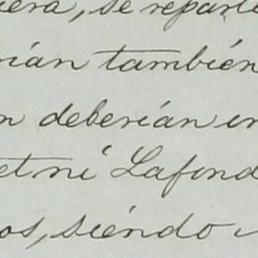 uera, se reparti
rían también
n deberían in
et ni Lafond
os, siéndo